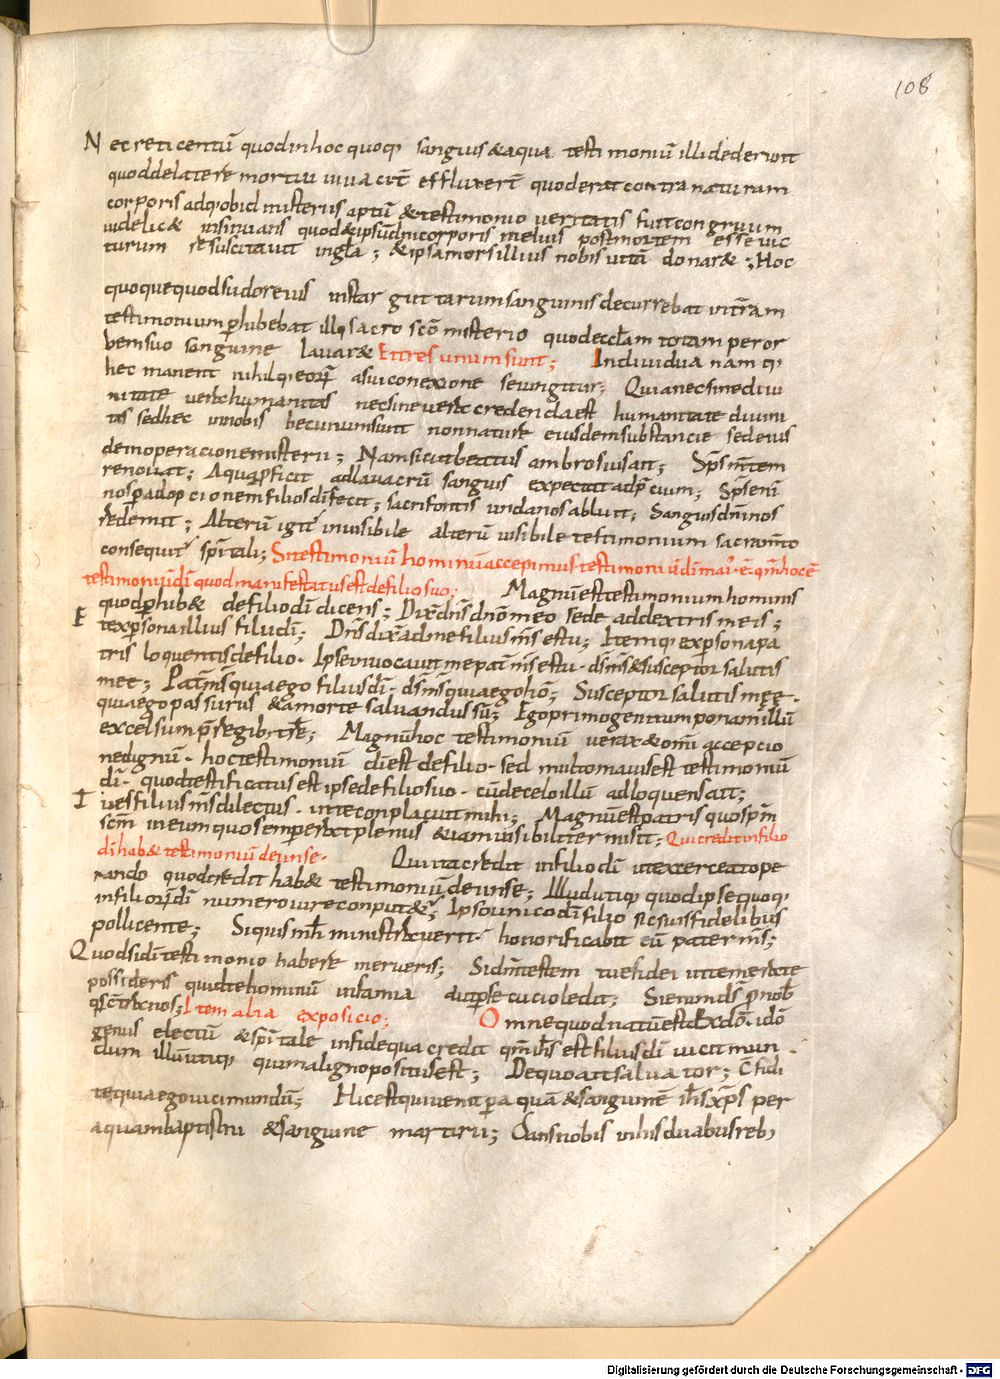 108
Nec reticentū quod in hoc quoq; sanguis & aqua testimoniū illi dederunt
quod de latere mortui viva cū effluxerū quod erat contra naturam
corporis adq; ob id misteriis aptū & testimonio veritatis fuit congruum
videlic& insinuans quod & ipsū dnī corporis melius post mortem esse vic
turum resuscitavit in gla; & ipsa mors illius nobis vitā donar&; Hoc
quoque quod sudor eius instar guttarum sanguinis decurrebat in trām
testimonium phibebat illq; sacro scō misterio quod ecclām totam per or
bem suo sanguine lavar& Et tres unum sunt; Individua namq;
hec manent nihilq; eorū a sui conexione seiungitur; Quia nec sine divi
nitate vera humanitas nec sine vera credenda est humanitate divini
tas sed hec in nobis hec unum sunt non nature eiusdem substancie sed eius
dem operacione misterii; Nam sicut beatus ambrosius ait; Sp̄s mtem
renovat; Aqua pficit ad lavacrū sanguis expectat ad p̄cium; Sp̄s enī
nos p adopcionem filios dī fecit; sacri fontis unda nos abluit; Sanguis dnī nos
redemit; Alterū igit̄ invisibile alterū visibile testimonium sacramto
consequit̄ sp̄itali; Si testimoniū hominū accepimus testimoniū dī mai᷒ ē qm̄ hoc ē
testimoniū dī quod manifestatus est de filio suo; Magnū est testimonium hominis
quod phib& de filio dī dicens; Dix dns dno meo sede ad dextris meis;
Et ex psona illius filii dī; Dns dix ad me filius ms es tu; Itemq; ex psona pa
tris loquentis de filio. Ipse invocavit me pat̄ ms es tu. ds ms & susceptor salutis
mee; Pat̄ ms quia ego filius dī. ds ms quia ego hō; Susceptor salutis męę.
quia ego passurus & a morte salvandus sū; Ego primogenitum ponam illū
excelsum p̄ regibs tre; Magnū hoc testimoniū verax & omī accepcio
ne dignū. hoc testimoniū dī est de filio. sed multo maius est testimoniū
dī. quod testificatus est ipse de filio suo. cū de celo illū adloquens ait;
Tu es filius ms dilectus. in te conplacuit mihi; Magnū est patris quo sp̄m
scm in eum quo semper erat plenus etiam visibiliter misit; Qui credit in filio
dī hab& testimoniū dei in se. Qui ita credit in filio dī ut exerceat ope
rando quod credit hab& testimoniū dei in se; Illud utiq; quod ipse quoq;
in filiorū dī numero iure conput&̄; Ipso unico dī filio sic suis fidelibus
pollicente; Siquis mhi ministraverit honorificabit eū pater ms;
Quod si dī testimonio habere merueris; Si dm testem tue fidei intemerate
possideris quid te hominū infamia aut psecucio ledit; Si enim ds p nob
qs contra nos; Item alia exposicio; Omne quod natū est ex dō. idō
genus electū & sp̄itale in fide qua credit qm̄ ihs est filius dī vicit mun
dum illū utiq; qui in maligno positus est; De quo ait salvator; Cfidi
te quia ego vici mundū; Hic est qui venit p aquā & sanguinē ihs xps per
aquam baptismi & sanguine martirii; Dans nobis in his duabus reb;
Digitalisierung gefördert durch die Deutsche Forschungsgemeinschaft - DFG